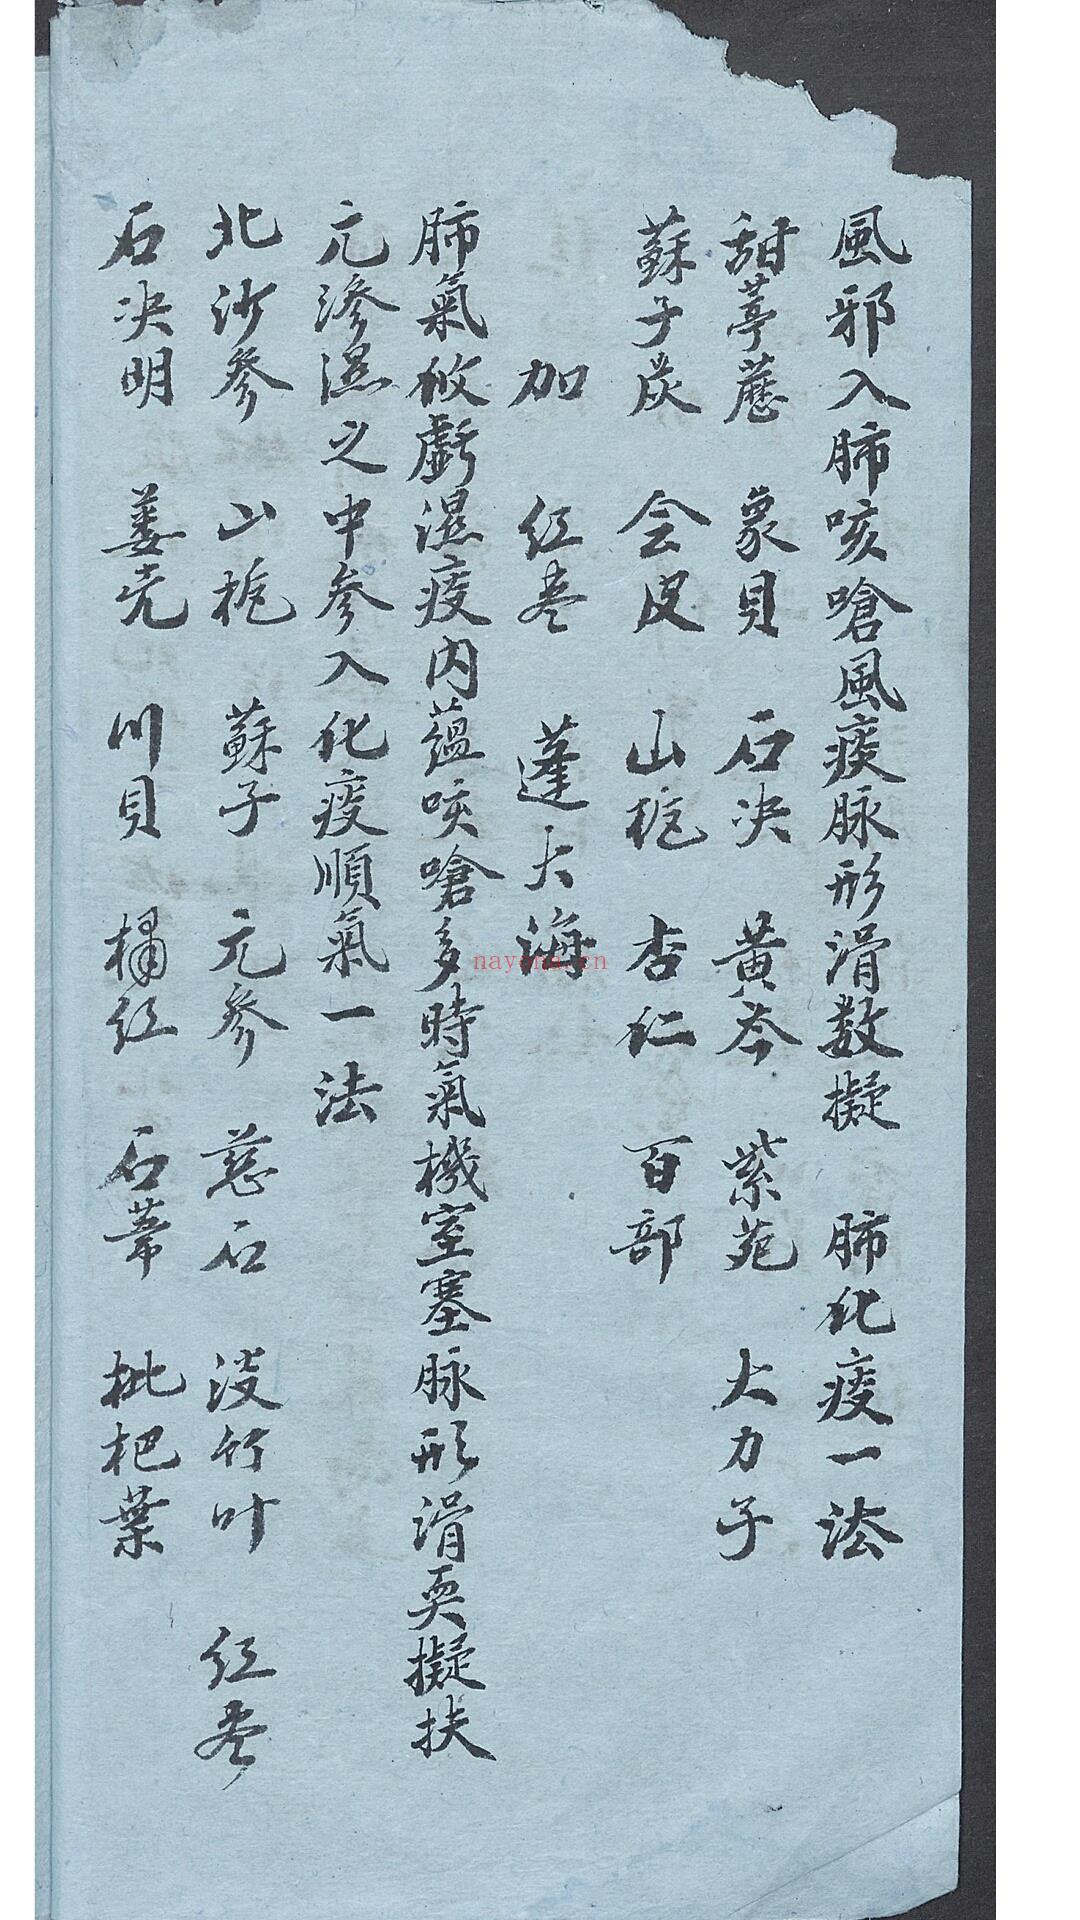 風邪入肺咳嗆風痰脉形滑数擬 肺化痰一法
甜葶藶 象貝 石决 黃芩 紫苑 大力子
蘇子炭 会皮 山栀 杏仁 百部
加 红枣 蓬大海
肺氣攸虧濕痰内蘊咳嗆多時氣機窒塞脉形滑耎擬扶
元滲濕之中參入化痰順氣一法
北沙參 山栀 蘇子 元參 慈石 淡竹叶 红枣
石决明 蒌壳 川貝 橘红 石葦 枇杷葉
nayona.cn